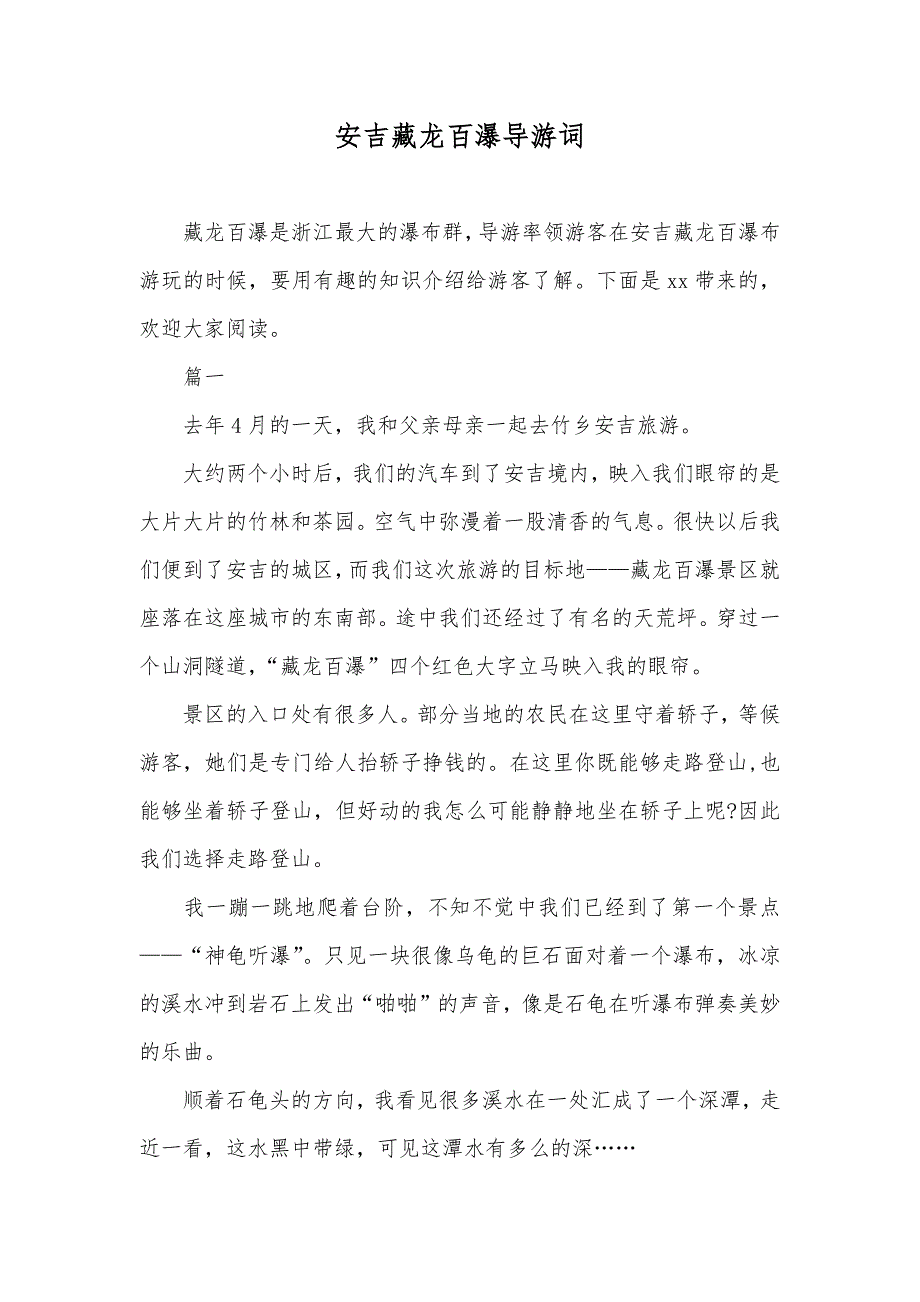 安吉藏龙百瀑导游词
藏龙百瀑是浙江最大的瀑布群，导游率领游客在安吉藏龙百瀑布
游玩的时候，要用有趣的知识介绍给游客了解。下面是 xx 带来的，
欢迎大家阅读。
篇一
去年 4 月的一天，我和父亲母亲一起去竹乡安吉旅游。
大约两个小时后，我们的汽车到了安吉境内，映入我们眼帘的是
大片大片的竹林和茶园。空气中弥漫着一股清香的气息。很快以后我
们便到了安吉的城区，而我们这次旅游的目标地——藏龙百瀑景区就
座落在这座城市的东南部。途中我们还经过了有名的天荒坪。穿过一
个山洞隧道，“藏龙百瀑”四个红色大字立马映入我的眼帘。
景区的入口处有很多人。部分当地的农民在这里守着轿子，等候
游客，她们是专门给人抬轿子挣钱的。在这里你既能够走路登山,也
能够坐着轿子登山，但好动的我怎么可能静静地坐在轿子上呢?因此
我们选择走路登山。
我一蹦一跳地爬着台阶，不知不觉中我们已经到了第一个景点
——“神龟听瀑”。只见一块很像乌龟的巨石面对着一个瀑布，冰凉
的溪水冲到岩石上发出“啪啪”的声音，像是石龟在听瀑布弹奏美妙
的乐曲。
顺着石龟头的方向，我看见很多溪水在一处汇成了一个深潭，走
近一看，这水黑中带绿，可见这潭水有多么的深……